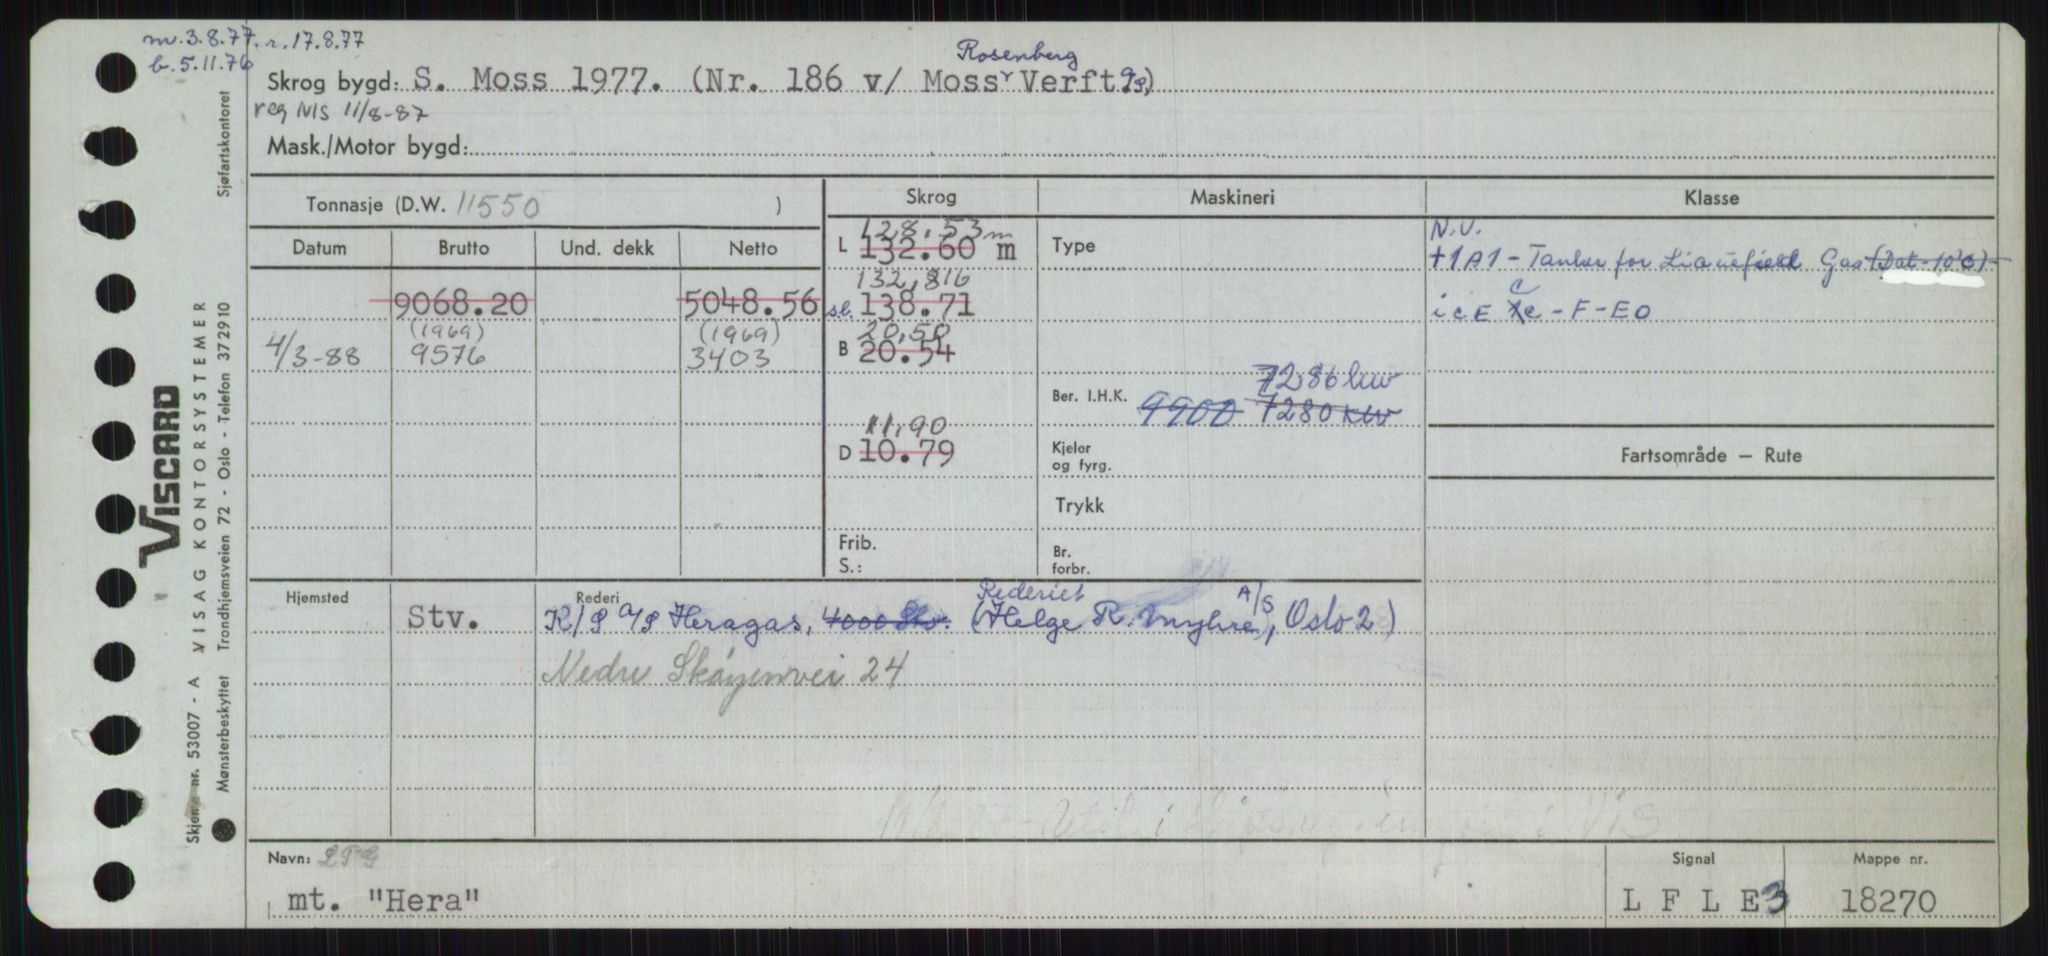 m. 3.8.77. r. 17.8.77
b. 5.11.76
Rosenberg
Skrog bygd: S. Moss 1977. (Nr. 186 v/ Moss Verft)
reg NIS 11/8-87
Mask./Motor bygd:
Tonnasje (D.W. 11550 )
Skrog Maskineri Klasse
Datum Brutto Und. dekk Netto
L 128.53 m
132.60 m
Type
N.V.
+1A1 - Tanker for Liquefied Gas
132,816
9068.20 5048.56 sl. 138.71
icE C - F - EO
(1969) (1969) 20,50
4/3-88 9576 3403 B 20.54
7286 kw
Ber. I.H.K. 9900 7280 kw
11,90
D 10.79
Kjeler og fyrg.
Fartsområde — Rute
Trykk
Frib.
S.:
Br. forbr.
Hjemsted Rederi
Rederiet A/S
Stv. K/S A/S Heragas, 4000 Stv. (Helge R. Myhre, Oslo 2)
Nedre Skøyenvei 24
Navn: LPG
mt. "Hera"
Signal Mappe nr.
L F L E 3 18270
Sjøfartskontoret
VISCARD
VISAG KONTORSYSTEMER
Trondhjemsveien 72 - Oslo - Telefon 372910
Skjema nr. 53007 - A
Mønsterbeskyttet